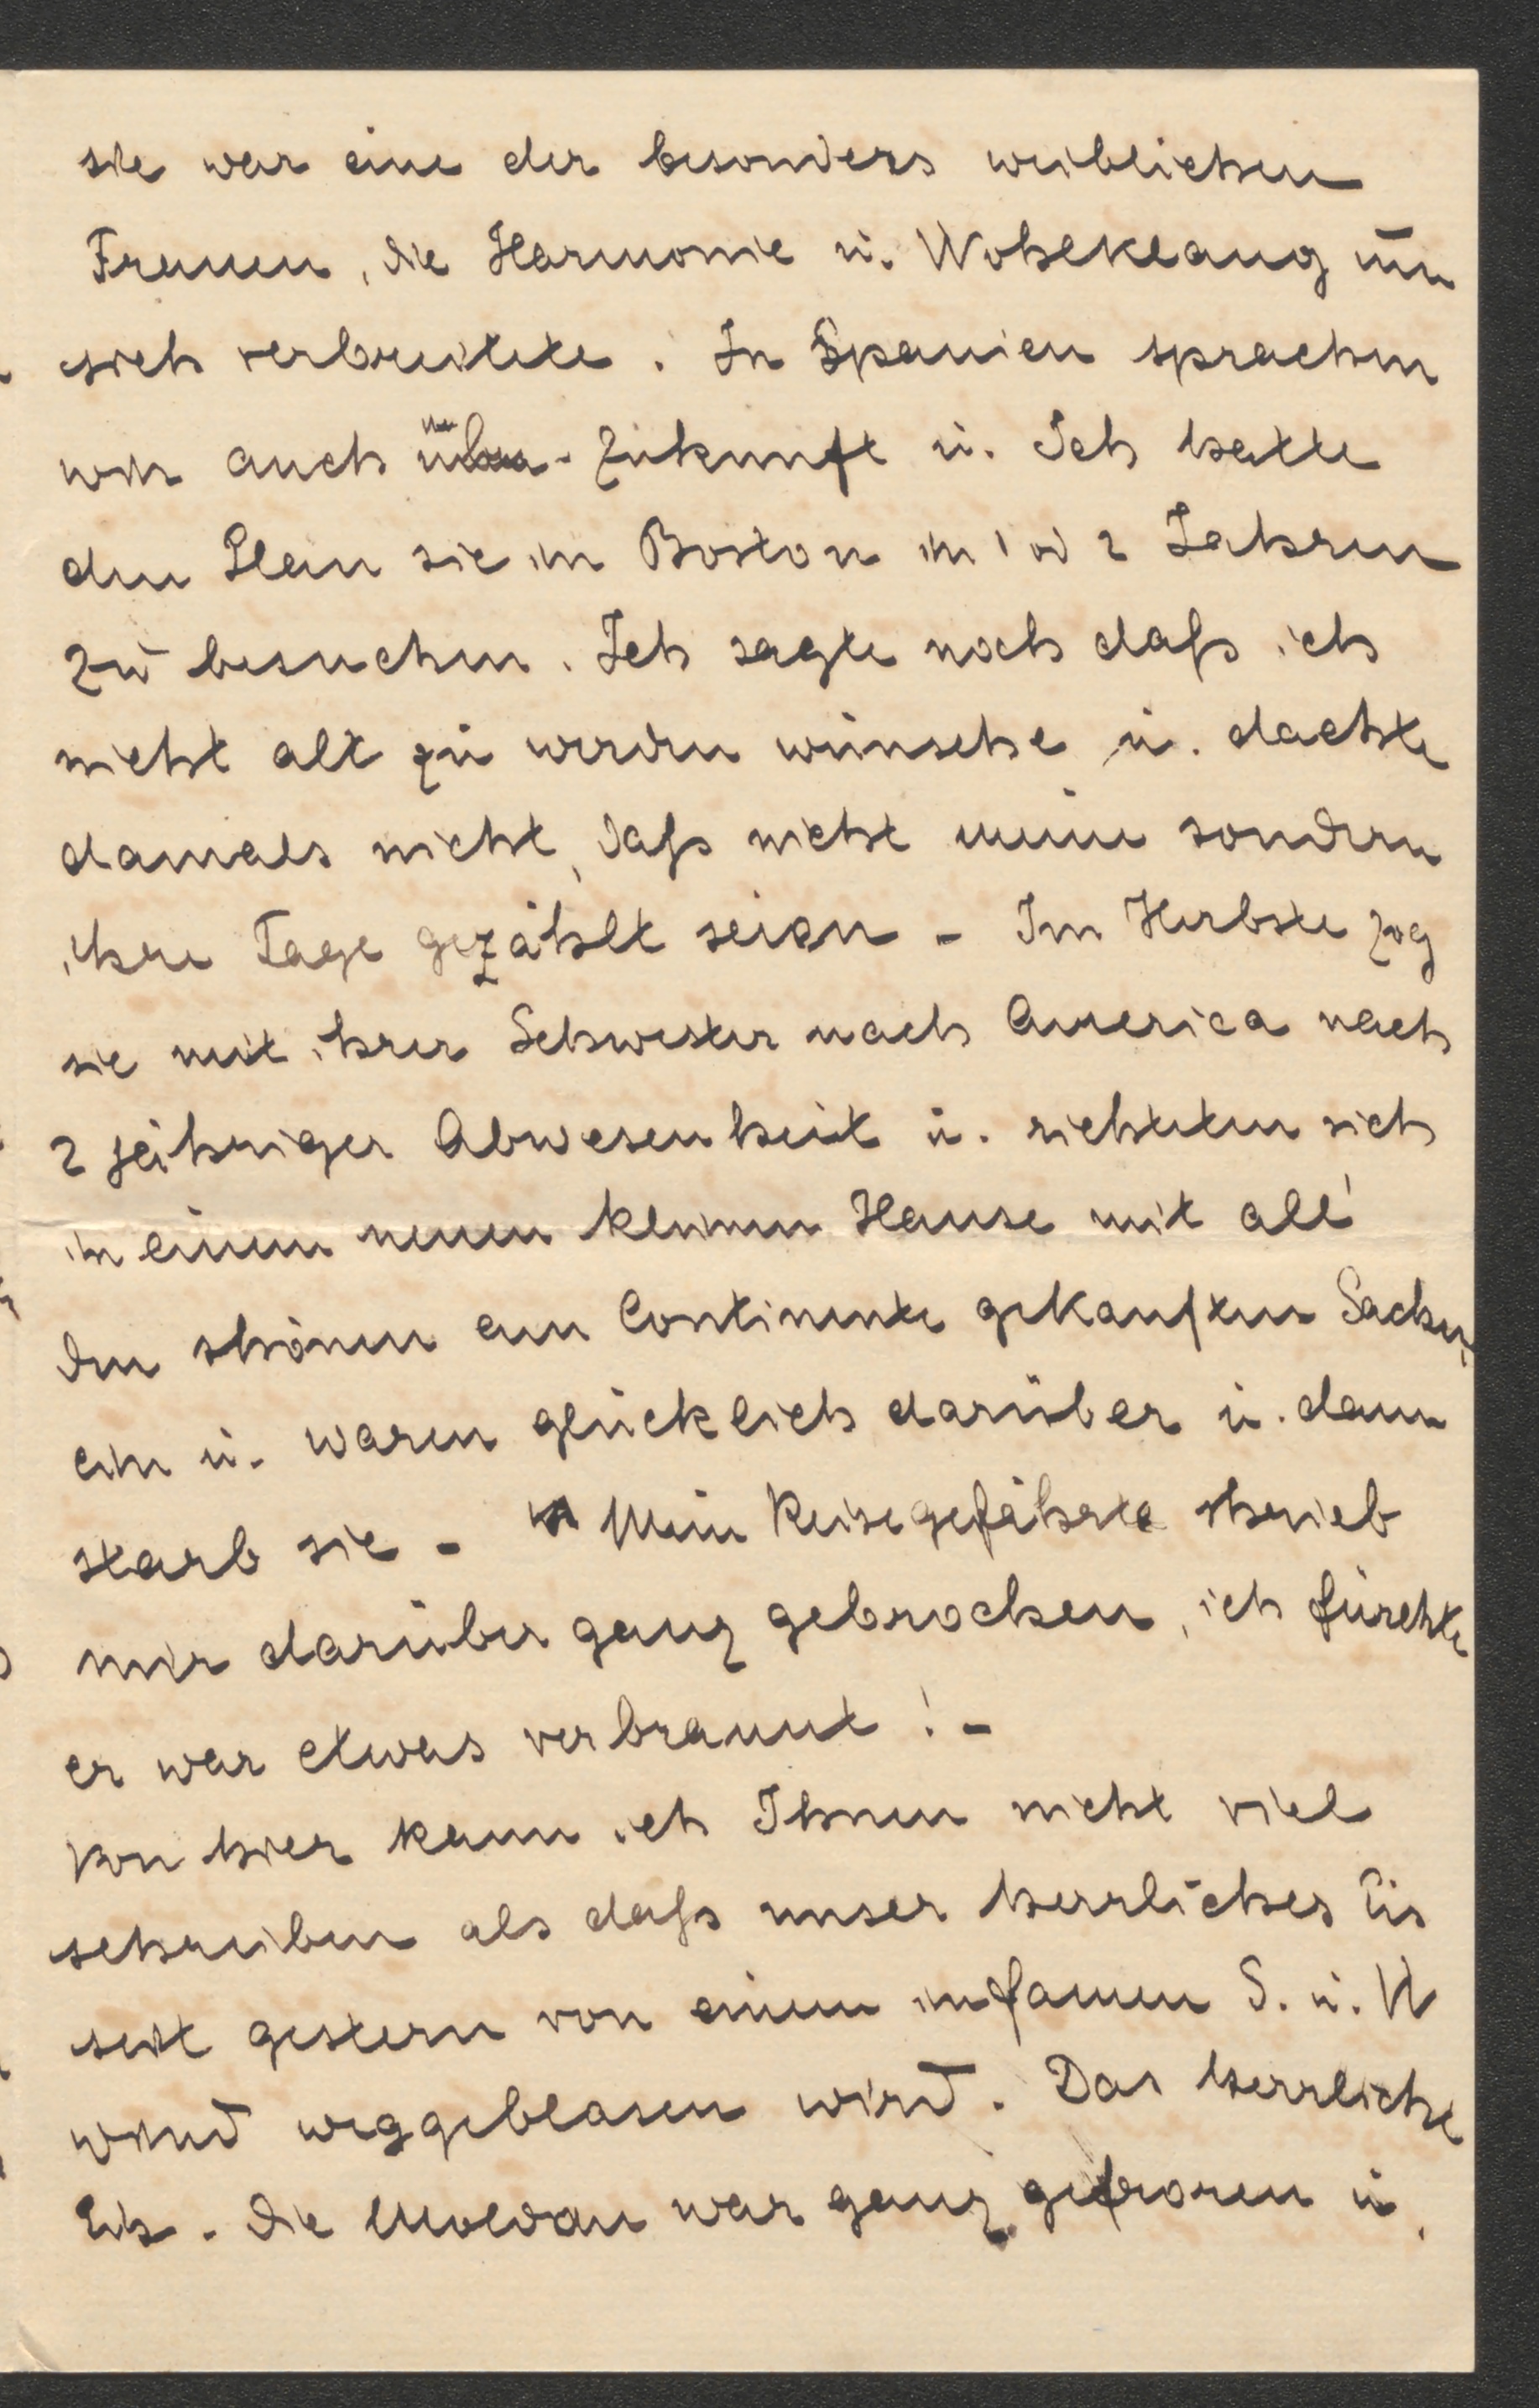 sie war eine der besonders weiblichen
Frauen, die Harmonie u. Wohlklang um
sich verbreitete. In Spanien sprachen
wir auch über Zukunft u. Ich hatte
den Plan sie in Boston in 1 od 2 Jahren
zu besuchen. Ich sagte noch daß ich
nicht alt zu werden wünsche u. dachte
damals nicht, daß nicht meine sondern
ihre Tage gezählt seien - Im Herbste zog
sie mit ihrer Schwester nach America nach
2 jähriger Abwesenheit u. richteten sich
in einem neuen kleinen Hause mit all'
den schönen am Continente gekauften Sachen,
ein u. waren glücklich darüber u. dann
starb sie - Mein Reisegefährte schrieb
mir darüber ganz gebrochen, ich fürchte
er war etwas verbrannt! -
Von hier kann ich Ihnen nicht viel
schreiben als daß unser herrliches Eis
seit gestern von einem infamen S. u. W
wind weggeblasen wird. Das herrliche
Eis. Die Moldau war ganz gefroren u.